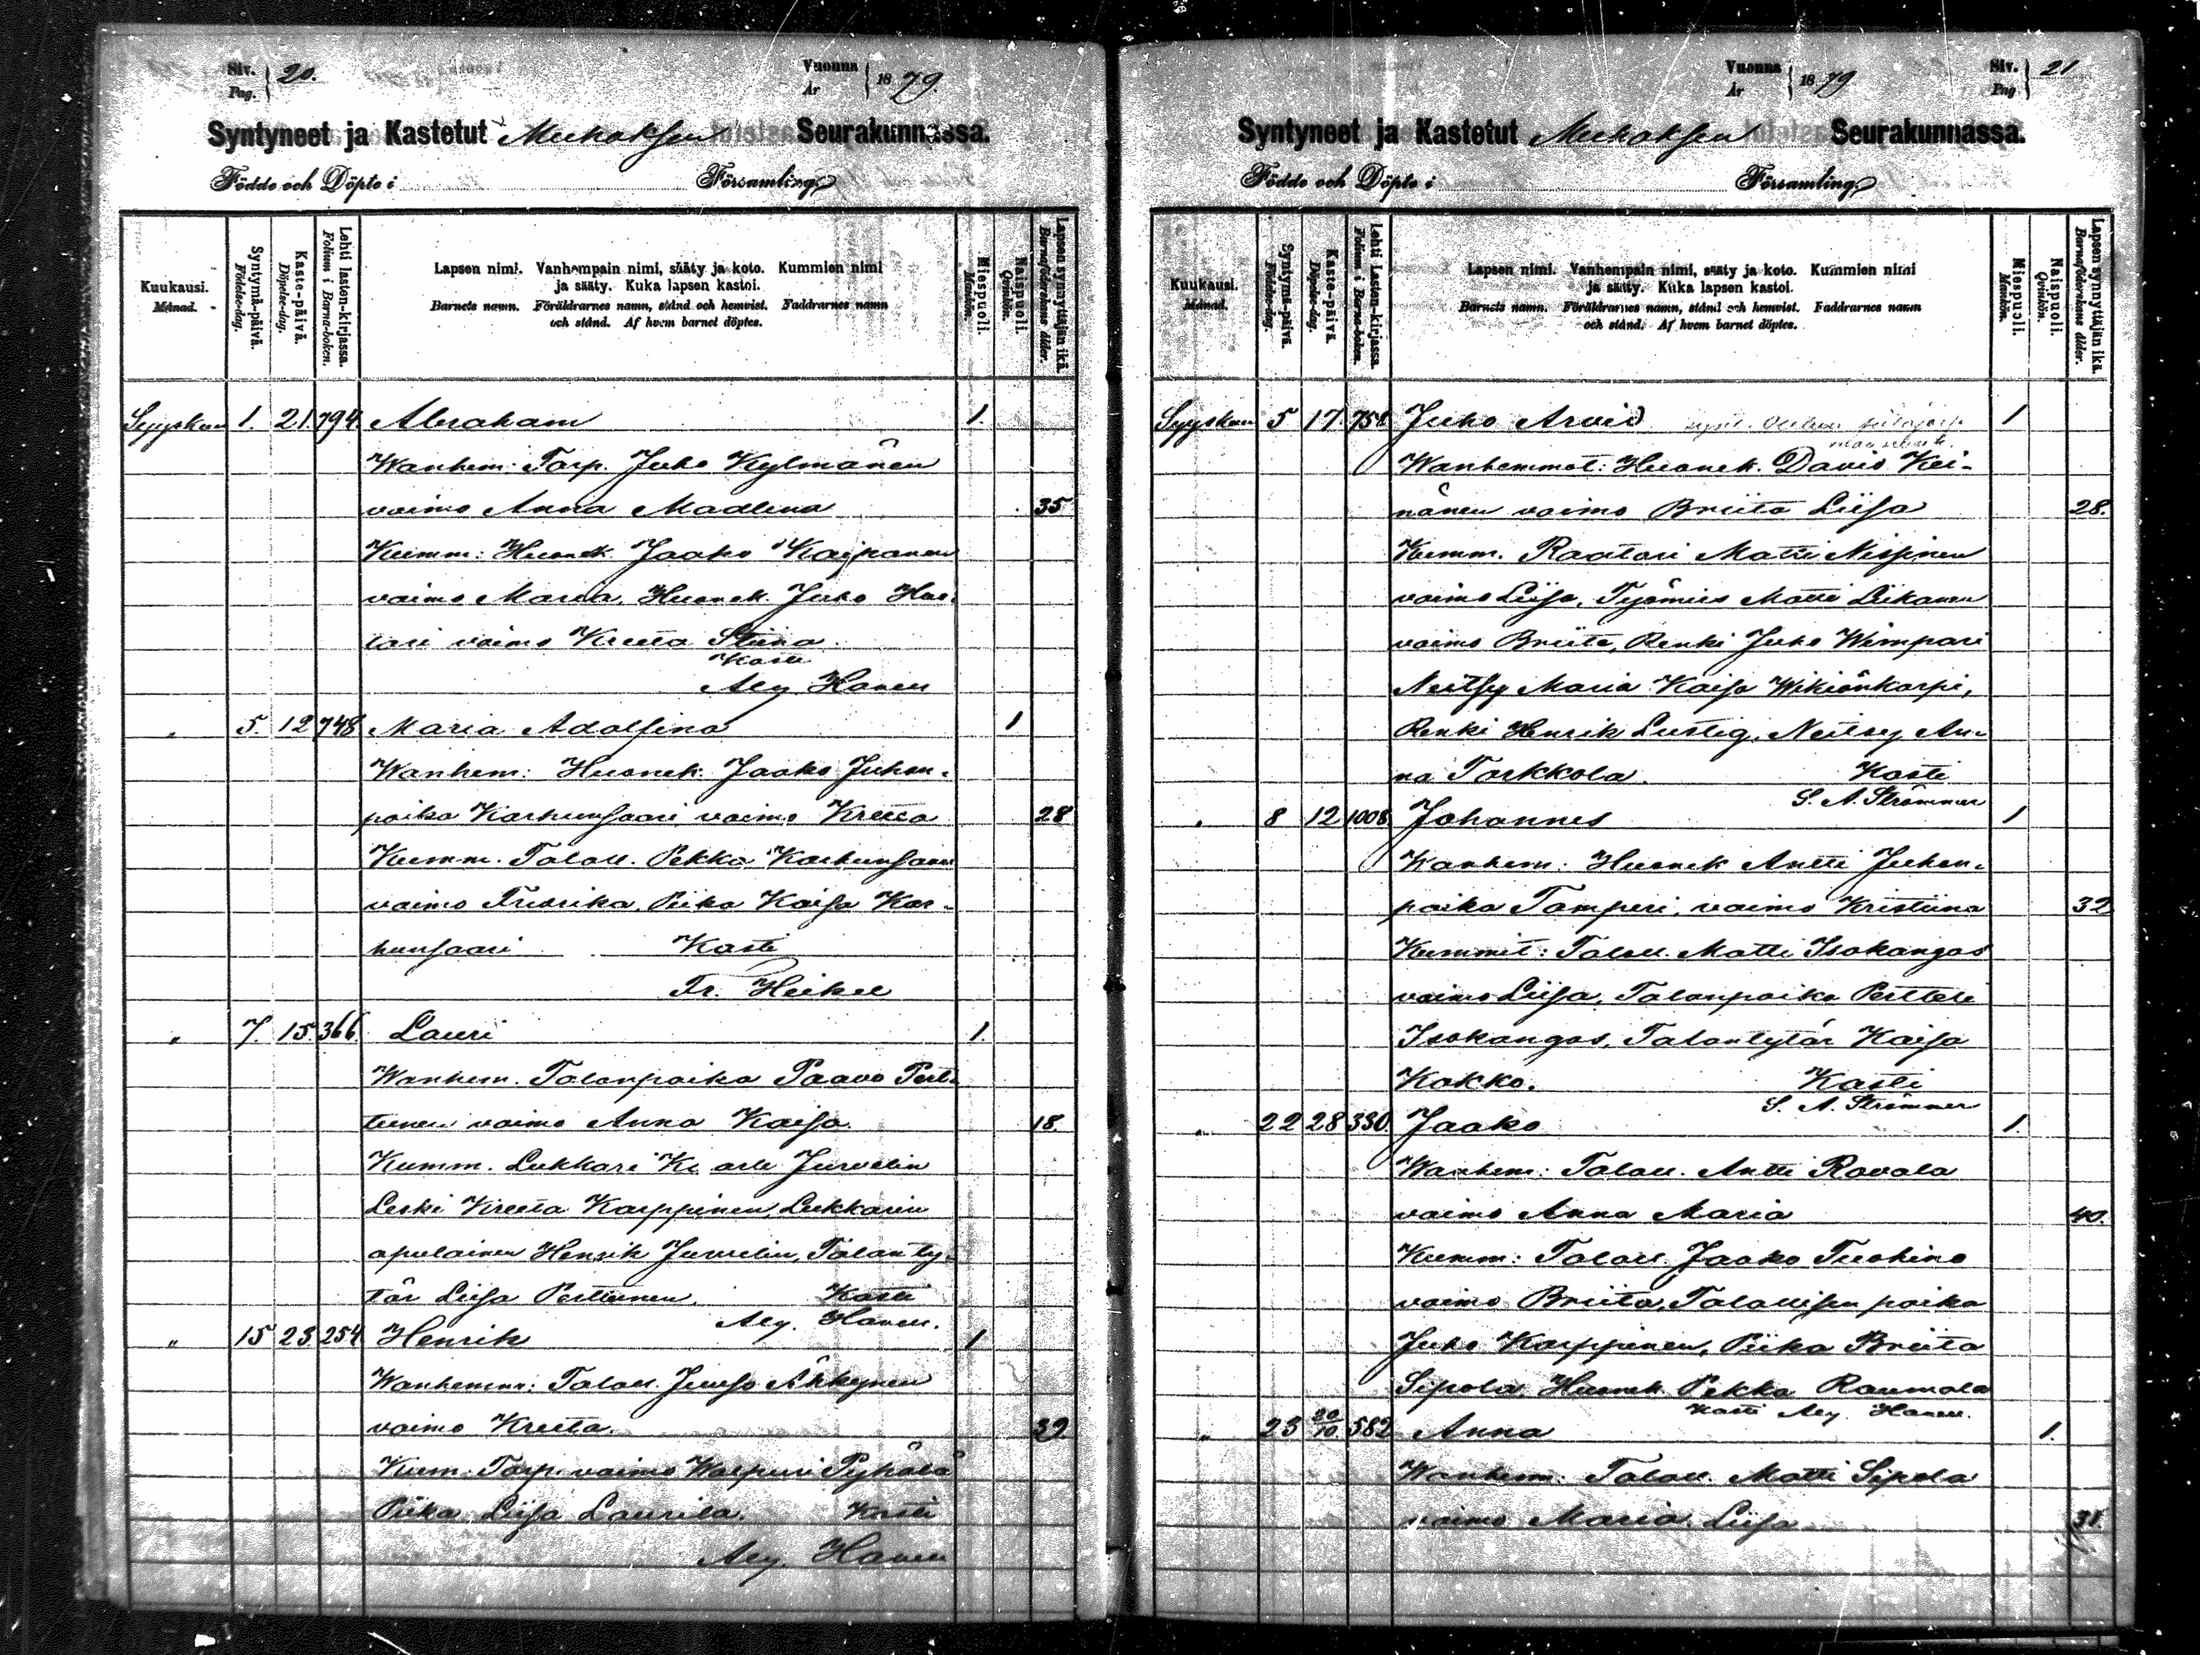 Siv. Pag. 20.
Vuonna År 1879
Syntyneet ja Kastetut Muhoksen Seurakunnassa.
Födde och Döpte i Församling
Kuukausi. Månad.
Syntymä-päivä. Födelse-dag.
Kaste-päivä. Döpelse-dag.
Lehti lasten-kirjassa. Folium i Barna-boken.
Lapsen nimi. Vanhempain nimi, sääty ja koto. Kummien nimi
ja sääty. Kuka lapsen kastoi.
Barnets namn. Föräldrarnes namn, stånd och hemvist. Faddrarnes namn
och stånd. Af hvem barnet döptes.
Miespuoli. Mankön.
Naispuoli. Qvinkön.
Lapsen synnyttäjän ikä. Barnaföderskans ålder.
Syyskuu 1. 21. 794. Abraham 1.
Wanhem: Torp. Juho Kylmänen
vaimo Anna Madlena 35
Kumm: Huonek. Jaako Kaipanen
vaimo Maria, Huonek. Juho Huo-
tari vaimo Kreeta Stiina.
Kasti
Alex. Hanell
" 5. 12 748 Maria Adolfina 1
Wanhem: Huonek. Jaako Juhon-
poika Karhunsaari vaimo Kreeta 28
Kumm. Taloll. Pekka Karhunsaari
vaimo Fredrika, Piika Kaisa Kar-
hunsaari Kasti
Fr. Heikel
" 7. 15. 366. Lauri 1.
Wanhem. Talonpoika Paavo Pert-
tunen vaimo Anna Kaisa. 18.
Kumm. Lukkari Kaarle Juvelin
Leski Kreeta Karppinen, Lukkarin
apulainen Henrik Juvelin, Talonty-
tär Liisa Perttunen. Kasti
Alex. Hanell.
" 15 23 254 Henrik 1
Wanhemm: Taloll. Juuso Äkkynen
vaimo Kreeta. 32
Kum. Torp. vaimo Walpuri Pyhälä
Piika Liisa Laurila. Kasti
Alex. Hanell
Vuonna År 1879
Siv. Pag 21
Syntyneet ja Kastetut Muhoksen Seurakunnassa.
Födde och Döpte i Församling
Kuukausi. Månad.
Syntymä-päivä. Födelse-dag.
Kaste-päivä. Döpelse-dag.
Lehti Lasten-kirjassa. Folium i Barna-boken.
Lapsen nimi. Vanhempain nimi, sääty ja koto. Kummien nimi
ja sääty. Kuka lapsen kastoi.
Barnets namn. Föräldrarnes namn, stånd och hemvist. Faddrarnes namn
och stånd. Af hvem barnet döptes.
Miespuoli. Mankön.
Naispuoli. Qvinkön.
Lapsen synnyttäjän ikä. Barnaföderskans ålder.
Syyskuu 5 17. 758 Juho Arvid 1
Wanhemmat: Huonek. David Kei-
nänen vaimo Briita Liisa 28.
Kumm. Räätäri Matti Nissinen
vaimo Liisa, Työmies Matti Liikanen
vaimo Briita, Renki Juho Wimpari
Neitsy Maria Kaisa Wikiönkarpi,
Renki Henrik Lustig, Neitsy An-
na Torkkola. Kasti
S. A. Strömmer
" 8 12 1008. Johannes 1
Wanhem: Huonek Antti Juhon-
poika Tamperi, vaimo Kristiina 32
Kummit: Taloll. Matti Isokangas
vaimo Liisa, Talonpoika Pertteli
Isokangas, Talontytär Kaisa
Kokko. Kasti
S. A. Strömmer
" 22 28 330. Jaako 1.
Wanhem: Taloll. Antti Rovala
vaimo Anna Maria 40.
Kumm: Taloll. Jaako Tuohino
vaimo Briita, Talollisen poika
Juho Karppinen, Piika Briita
Sipola Huonek Pekka Raumala
Kasti Alex Hanell.
" 23 20/10 582 Anna 1.
Wanhem: Taloll. Matti Sipola
vaimo Maria Liisa 31.